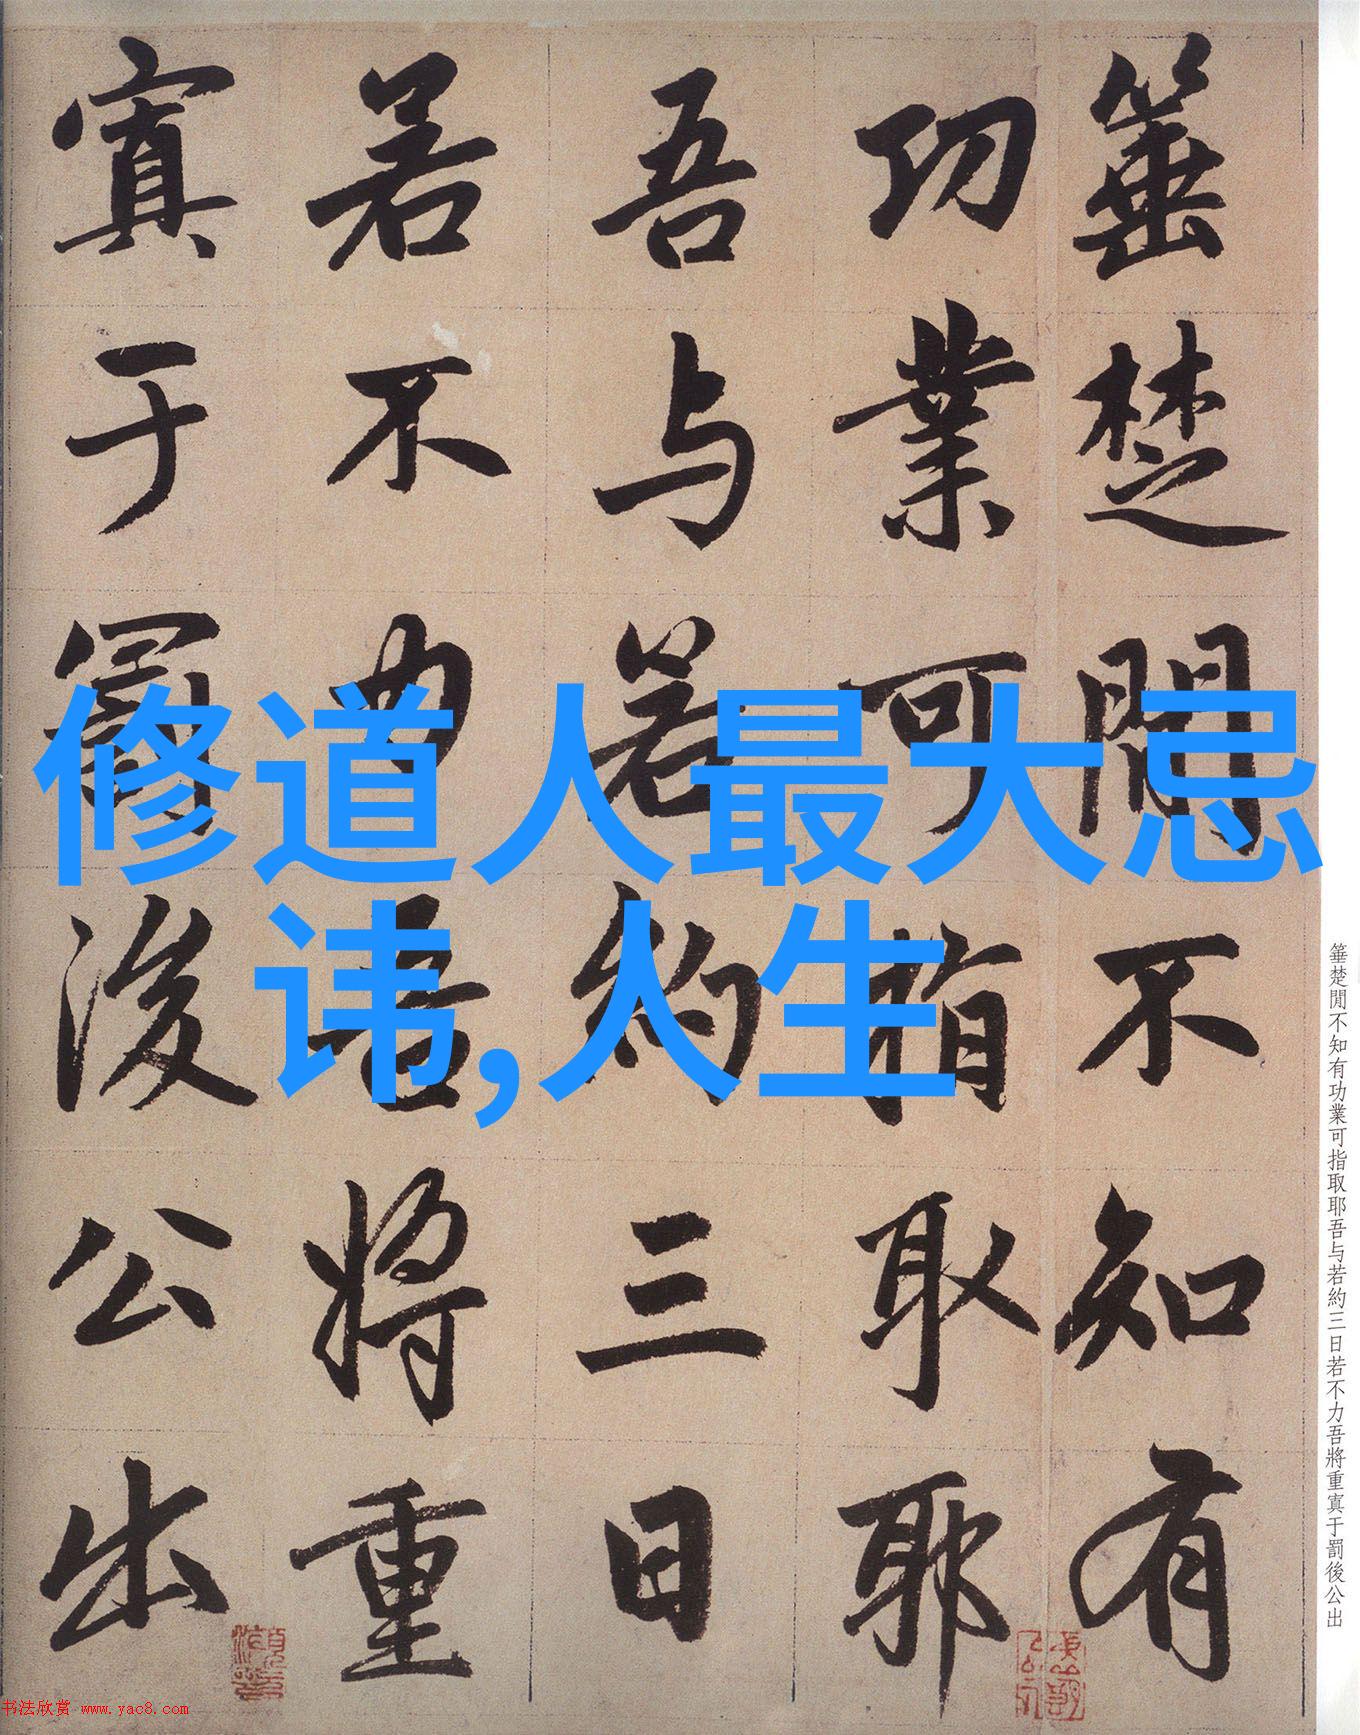 箠楚閒不知有
功業可指取耶
吾与若約三日
若不力吾將重
寘于罰後公出
修道人最大忌
讳,人生
箠楚閒不知有功業可指取耶吾与若約三日若不力吾將重寘于罰後公出
书法欣赏 www.yac8.com